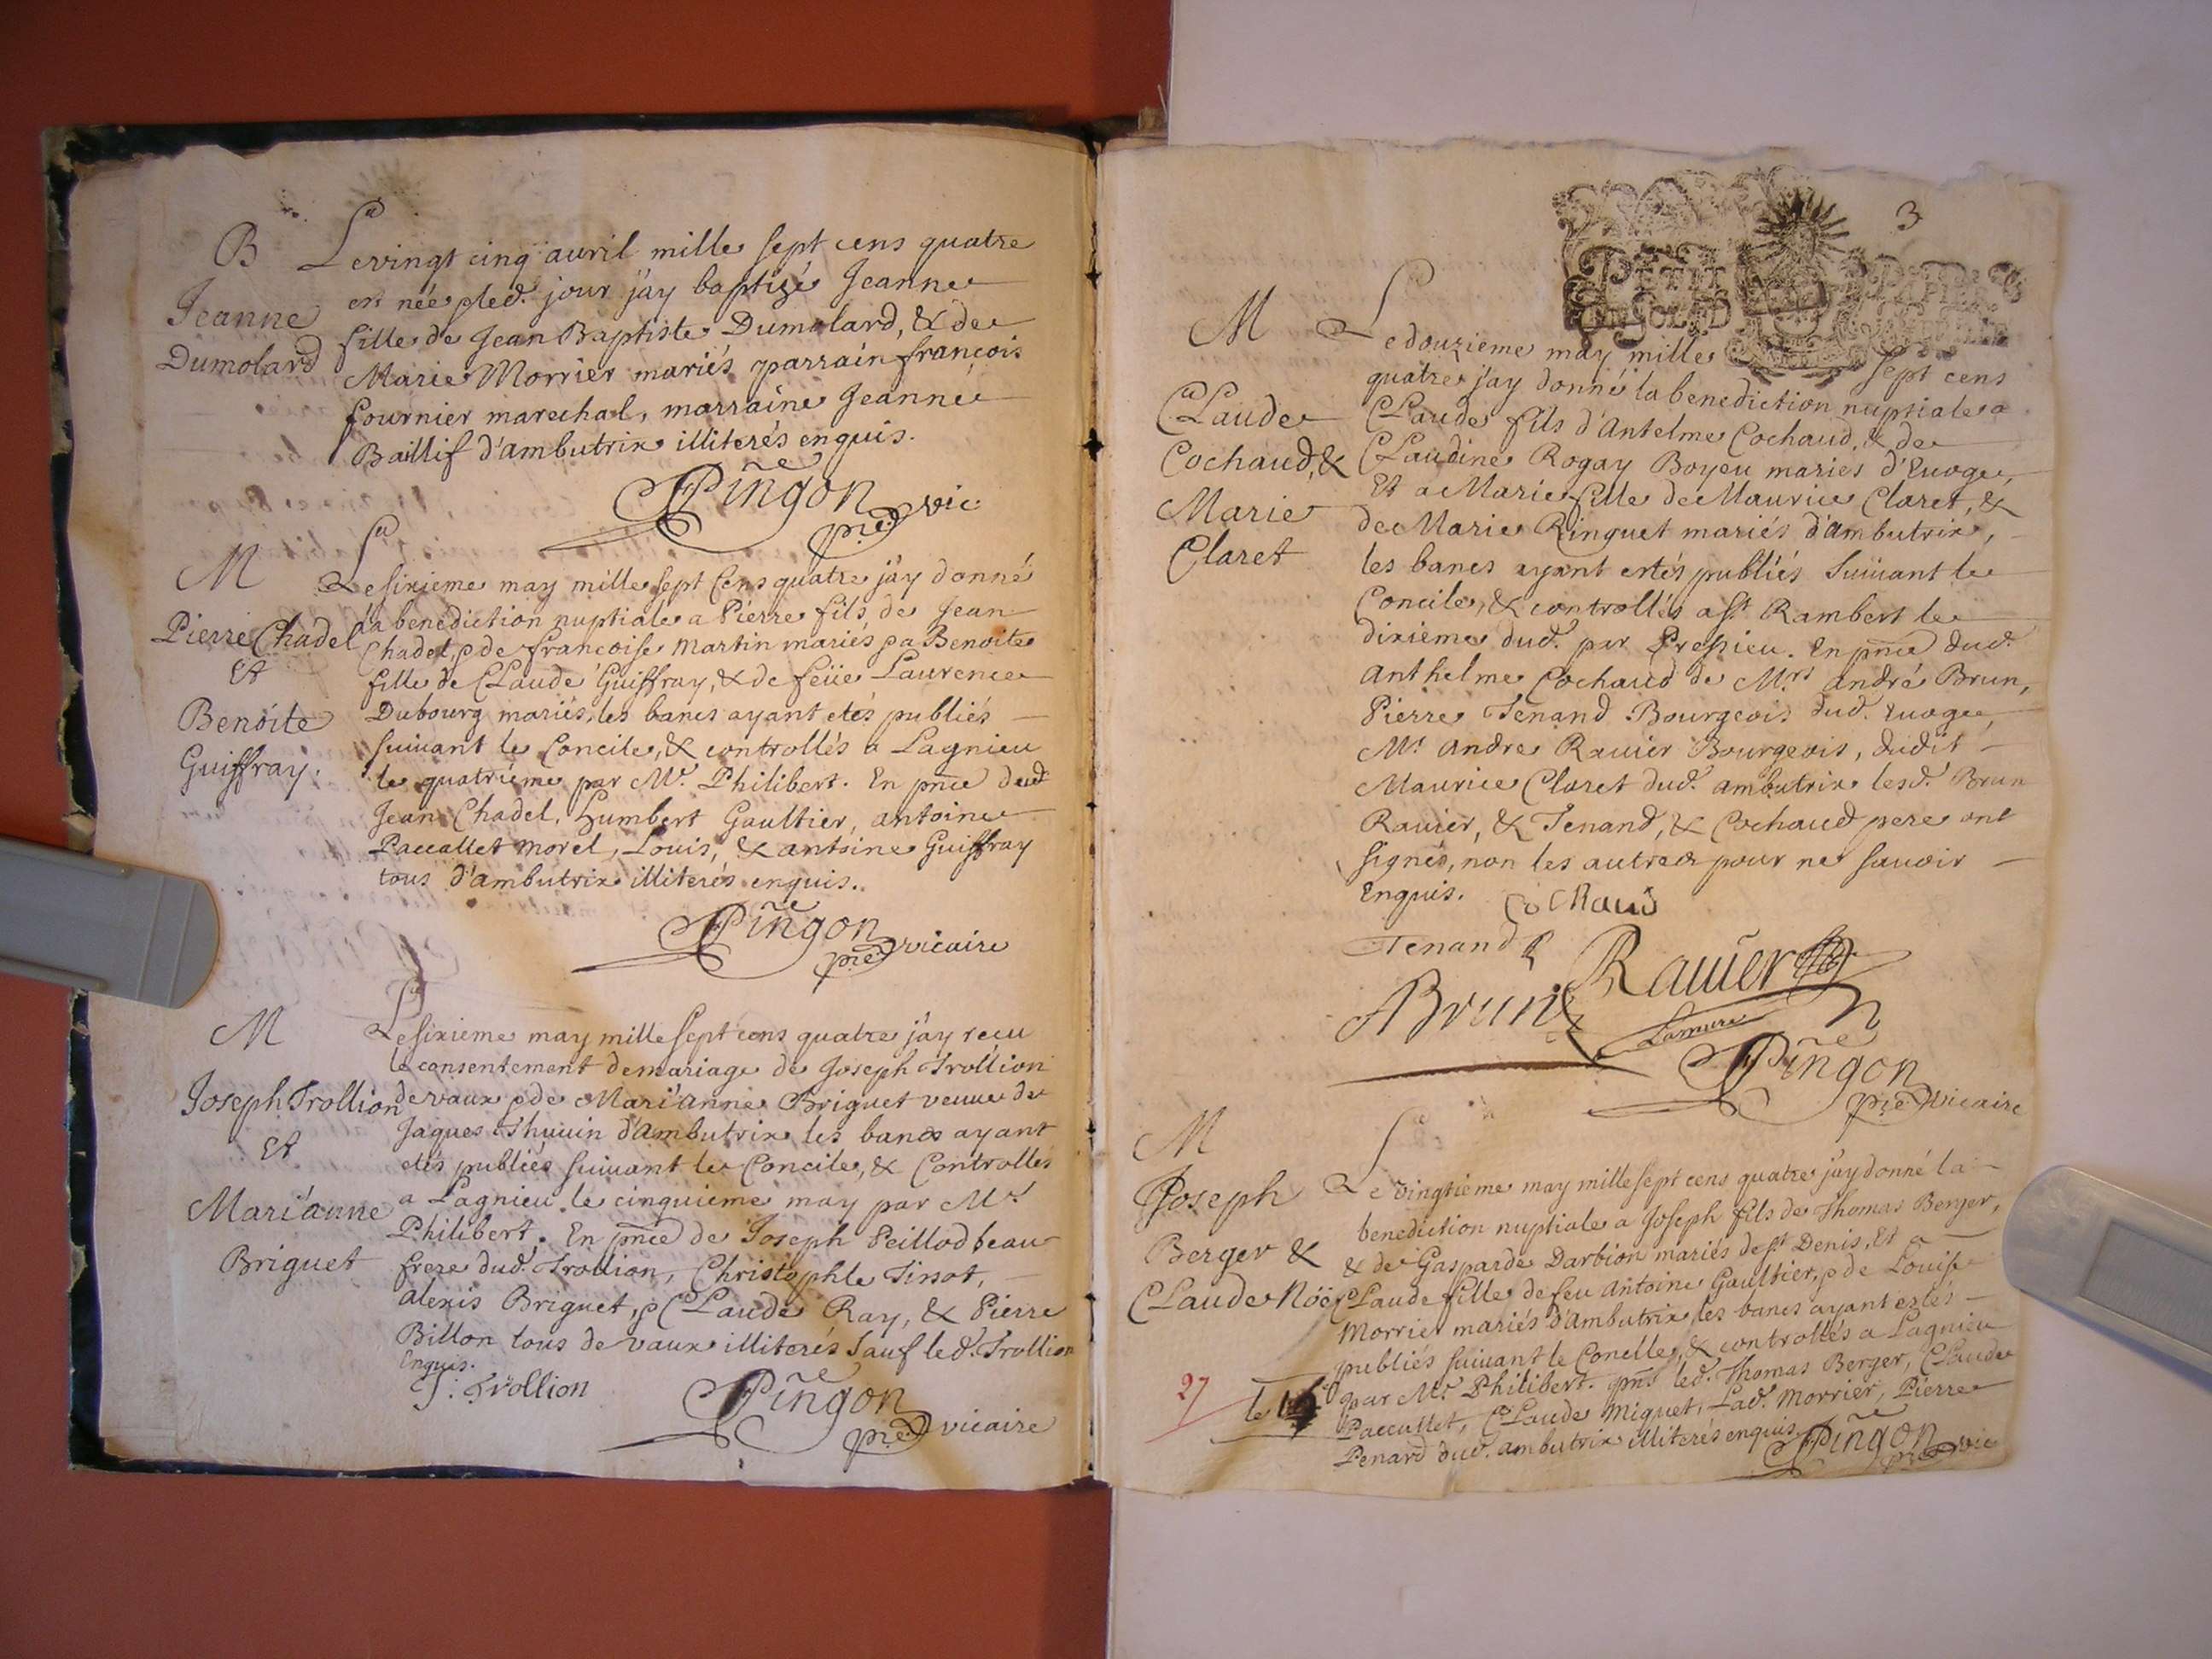 B
Jeanne
Dumolard
Le vingt cinq auril mille sept cens quatre
est née, & led. jour j'ay baptizé Jeanne
fille de Jean Baptiste Dumolard, & de
Marie Morrier mariés parrain françois
fournier marechal, marraine Jeanne
Baillif d'ambutrix illiterés enquis.
Pingon
pre. vic.
M
Pierre Chadel
Et
Benoite
Guiffray.
Le sixieme may mille sept Cens quatre j'ay donné
la benediction nuptiale a Pierre fils de Jean
Chadel, & de françoise Martin mariés, & a Benoite
fille de CLaude Guiffray, & de feüe Laurence
Dubourg mariés, les bancs ayant etés publiés
suiuant le Concile, & controllés a Lagnieu
le quatrieme par Mr. Philibert. En pnce dud.
Jean Chadel, Humbert Gaultier, antoine
Paccallet morel, Louis, & antoine Guiffray
tous d'ambutrix illiterés enquis.
Pingon
pre. vicaire
M
Joseph Trollion
Et
Mari'anne
Briguet
Le sixieme may mille sept cens quatre j'ay reçu
le consentement de mariage de Joseph Trollion
de vaux & de Mari'anne Briguet veuue de
Jaques Thuuin d'Ambutrix les bancs ayant
etés publiés suiuant le Concile, & Controllés
a Lagnieu le cinquieme may par Mr.
Philibert. En pnce de Joseph Peillod beau
frere dud. Trollion, Christophle Tissot,
alexis Briguet, & CLaude Ray, & Pierre
Billon tous de vaux illiterés sauf led. Trollion
Enquis.
J. Trollion
Pingon
pre. vicaire
3
PETIT
PAPIER
M
CLaude
Cochaud, &
Marie
Claret
Le douzieme may mille sept cens
quatre j'ay donné la benediction nuptiale a
CLaude fils d'Antelme Cochaud, & de
CLaudine Rogay Boyeu mariés d'Euoge,
Et a Marie fille de Maurice Claret, &
de Marie Ringuet mariés d'ambutrix,
les bancs ayant estés publiés Suiuant le
Concile, & controllés a St. Rambert le
dixieme dud. par Pressieu. En pnce dud.
Anthelme Cochaud de Mrs. andré Brun,
Pierre Tenand Bourgeois dud. Euoge,
Mr. andre Rauier Bourgeois, dudit
Maurice Claret dud. ambutrix lesd. Brun
Rauier, & Tenand, & Cochaud pere ont
signés, non les autres pour ne sauoir
Enquis. Cochaud
Tenand
Rauier
ABrun
Lamure
Pingon
pre. vicaire
M
Joseph
Berger &
CLaude Noëf
Le vingtieme may mille sept cens quatre j'ay donné la
benediction nuptiale a Joseph fils de Thomas Berger,
& de Gasparde Darbion mariés de St. Denis, Et a
CLaude fille de feu Antoine Gaultier, & de Louise
Morrier mariés d'Ambutrix les bancs ayant estés
publiés suiuant le Concille, & controllés a Lagnieu
27
le par Mr. Philibert. pns. led. Thomas Berger, CLaude
Paccallet, CLaude Miguet, Lad. Morrier, Pierre
Penard dud. ambutrix illiterés enquis.
Pingon
pre. vic